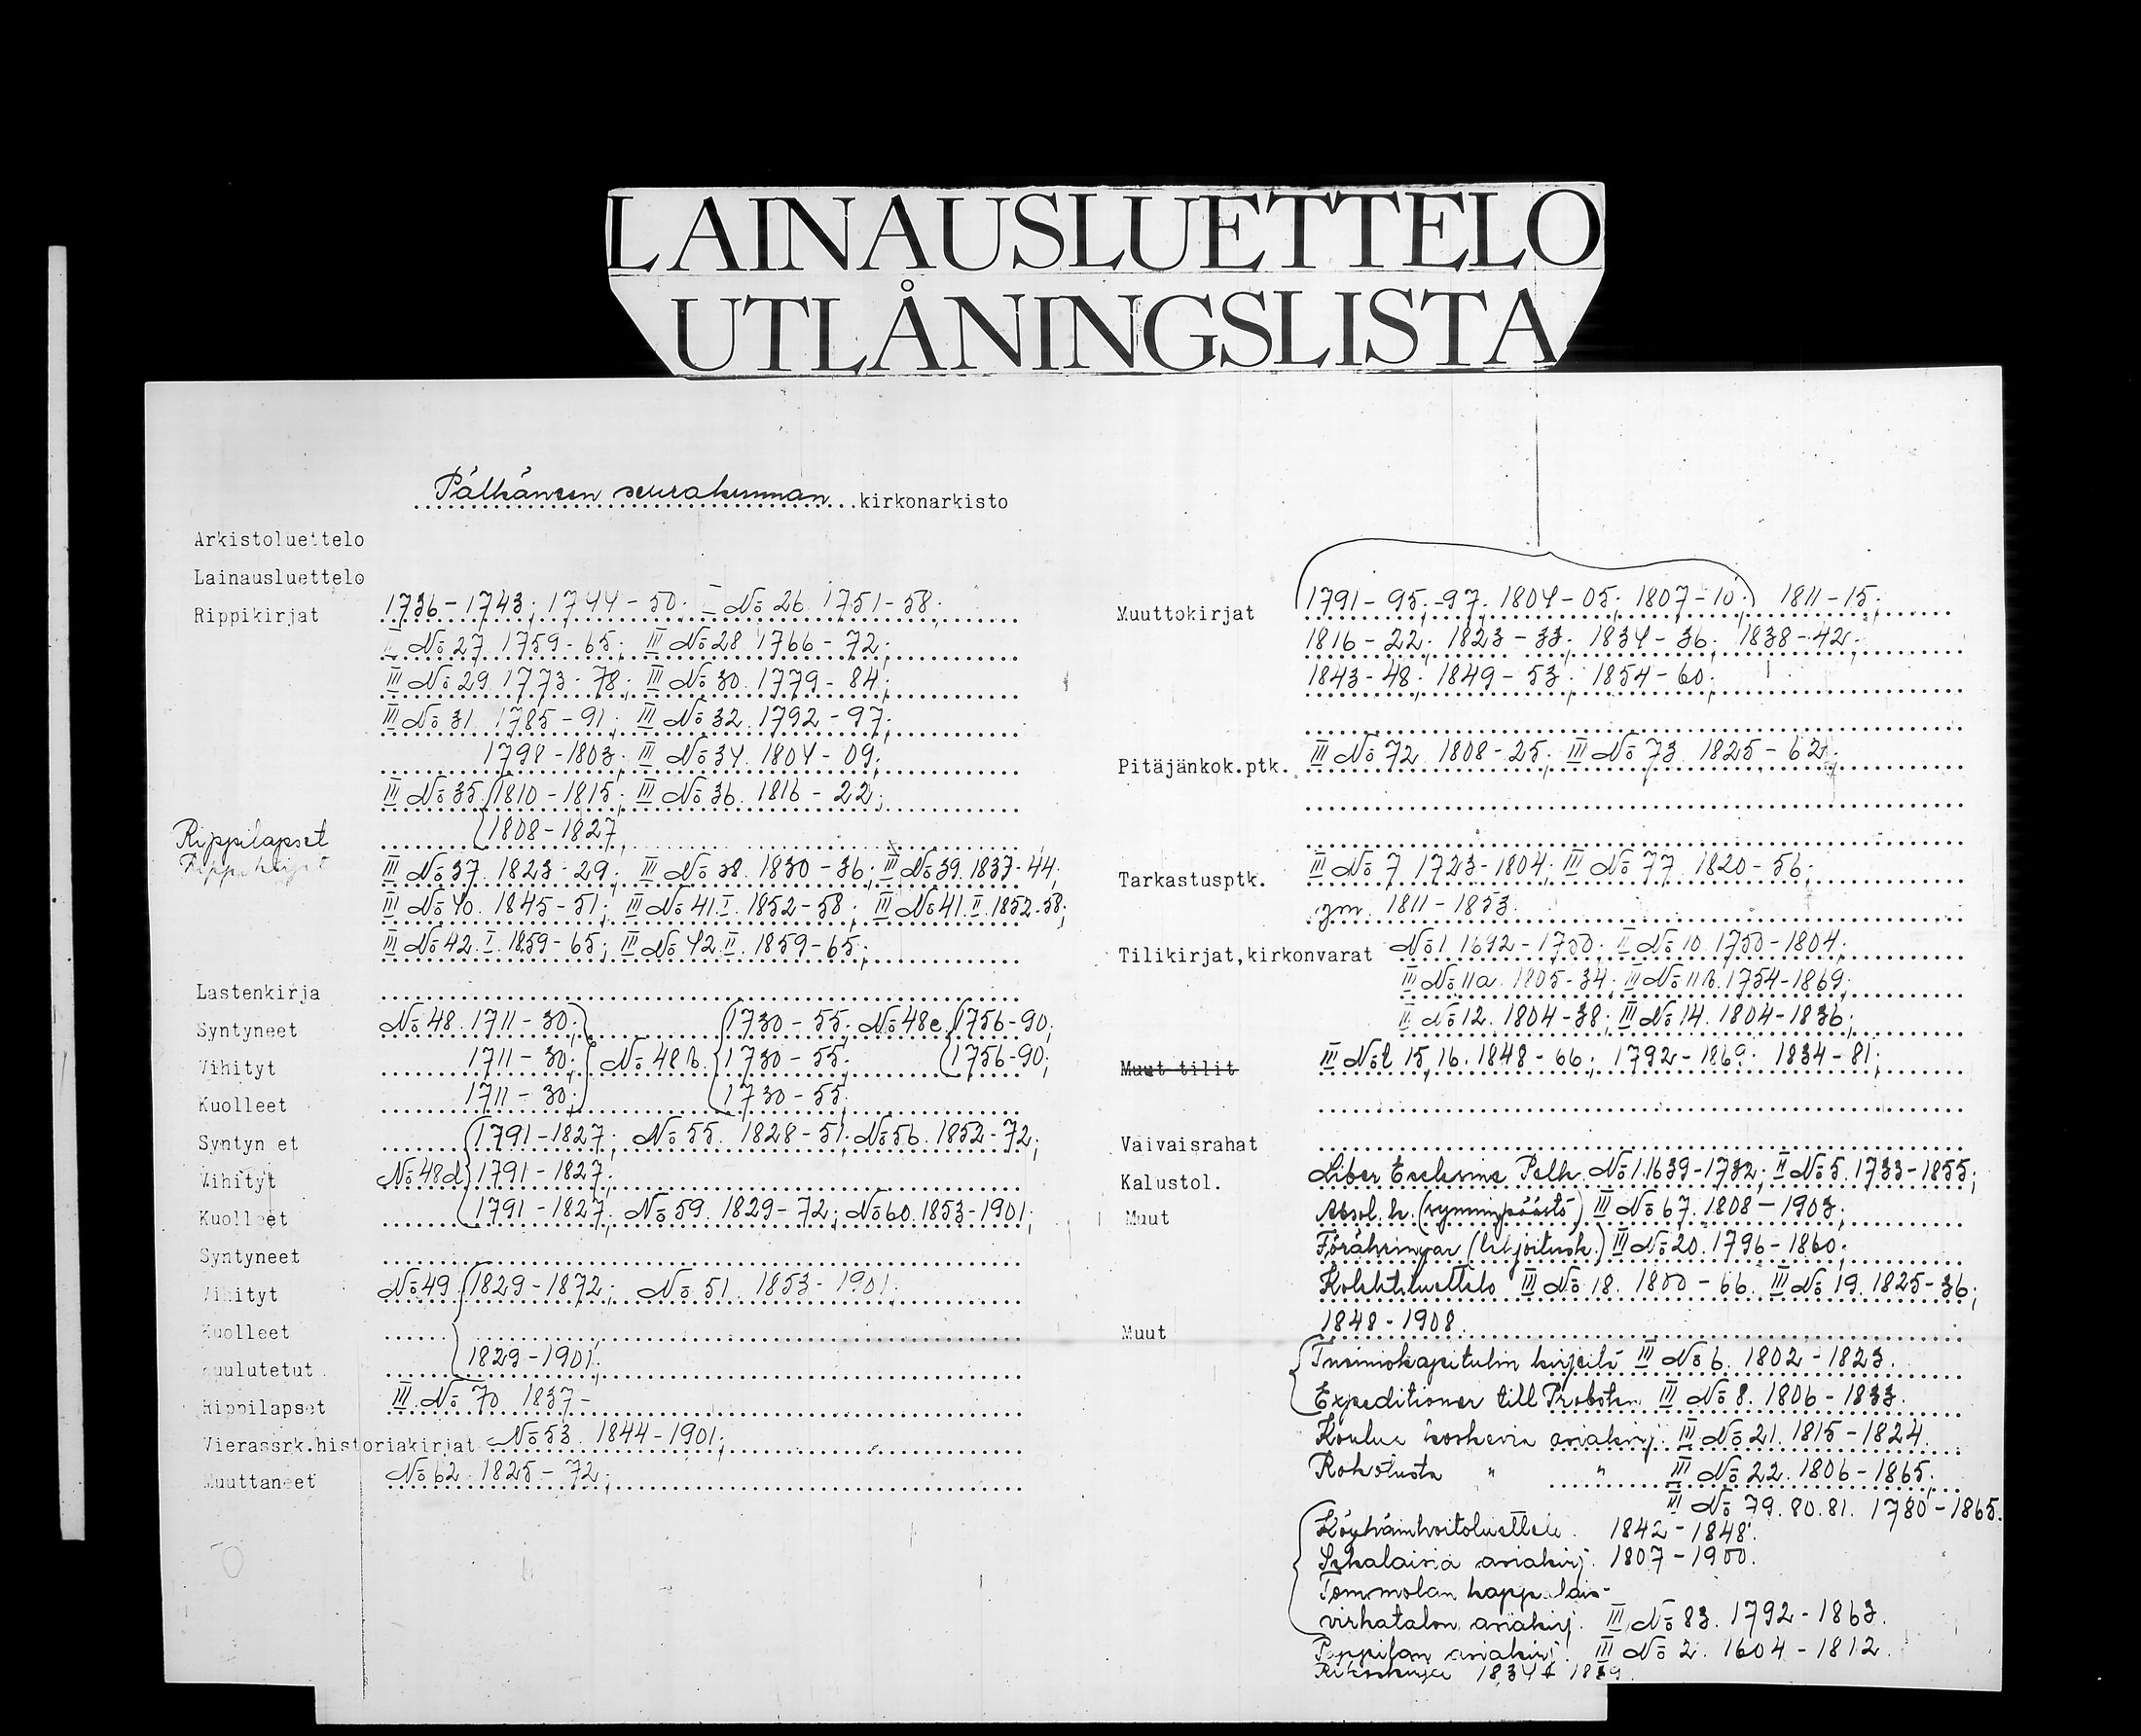 LAINAUSLUETTELO
UTLÅNINGSLISTA
Pälkäneen seurakunnan kirkonarkisto
Arkistoluettelo
Lainausluettelo
Rippikirjat 1736-1743; 1744-50; No 26 1751-58;
No 27 1759-65; III No 28 1766-72;
III No 29 1773-78; III No 30. 1779-84;
III No 31 1785-91; III No 32. 1792-97;
1798-1803; III No 34. 1804-09;
III No 35 1810-1815; III No 36. 1816-22;
Rippilapset 1808-1827
III No 37. 1823-29; III No 38. 1830-36; III No 39. 1837-44;
III No 40. 1845-51; III No 41.I. 1852-58; III No 41.II. 1852-58;
III No 42.I. 1859-65; III No 42.II. 1859-65;
Lastenkirja
Syntyneet No 48. 1711-30; 1730-55; No 48c. 1756-90;
Vihityt 1711-30; No 48b. 1730-55; 1756-90;
Kuolleet 1711-30; 1730-55;
Syntyn et 1791-1827; No 55. 1828-51; No 56. 1852-72;
Vihityt No 48d 1791-1827;
Kuolleet 1791-1827; No 59. 1829-72; No 60. 1853-1901;
Syntyneet
Vihityt No 49 1829-1872; No 51. 1853-1901;
Kuolleet
uulutetut 1829-1901;
Rippilapset III No 70 1837-
Vierassrk.historiakirjat No 53 1844-1901;
Muuttaneet No 62 1825-72;
Muuttokirjat 1791-95;-97. 1804-05; 1807-10; 1811-15;
1816-22; 1823-33; 1834-36; 1838-42;
1843-48; 1849-53; 1854-60;
Pitäjänkok.ptk. III No 72 1808-25; III No 73 1825-62;
Tarkastusptk. III No 7 1723-1804; III No 77 1820-56;
ym. 1811-1853.
Tilikirjat,kirkonvarat No 1 1692-1750; II No 10. 1750-1804;
III No 11a. 1805-34; III No 11b. 1754-1869;
II No 12. 1804-38; III No 14. 1804-1836;
Muut tilit III No 15,16. 1848-66; 1792-1869; 1834-81;
Vaivaisrahat
Kalustol. Liber Ecclesiae Pelk. No 1. 1639-1732; II No 5. 1733-1855;
Muut Absol. k. (synninpäästö) III No 67. 1808-1903;
Föräringar (lahjoitusk.) III No 20. 1796-1860;
Kolehtiluettelo III No 18. 1800-66. III No 19. 1825-36;
Muut 1848-1908.
Tuomiokapitulin kirjeitä III No 6. 1802-1823.
Expeditioner till Probsten III No 8. 1806-1833.
Koulua koskevia asiakirj. III No 21. 1815-1824.
Rokotusta " " III No 22. 1806-1865;
III No 79. 80. 81. 1780-1865.
Köyhäinhoitoluettelo. 1842-1848.
Sekalaisia asiakirj. 1807-1900.
Tommolan kappalais-
virkatalon asiakirj. III No 83. 1792-1863.
Pappilan asiakirj. III No 2. 1604-1812.
1834